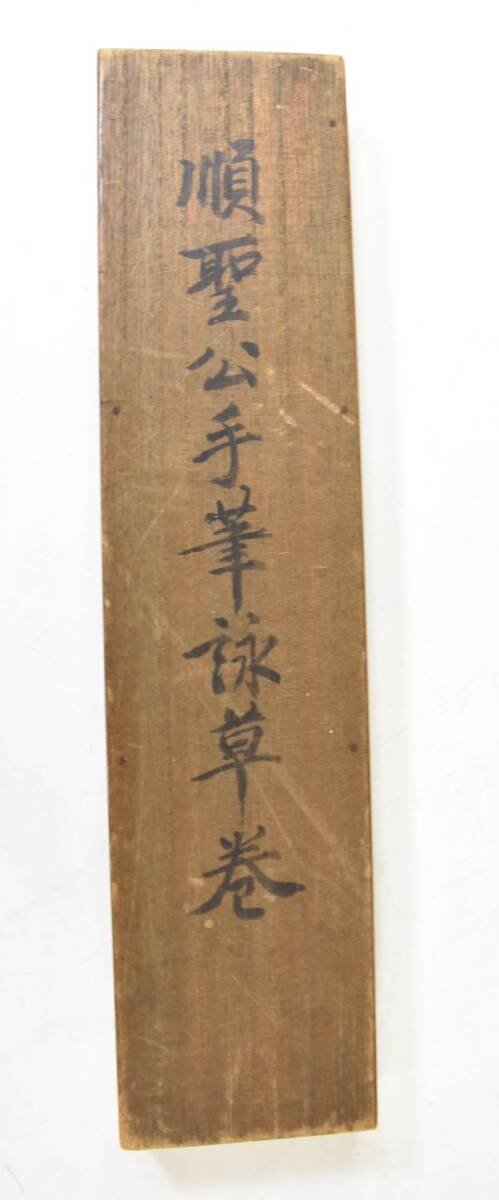 順聖公手筆詠草巻